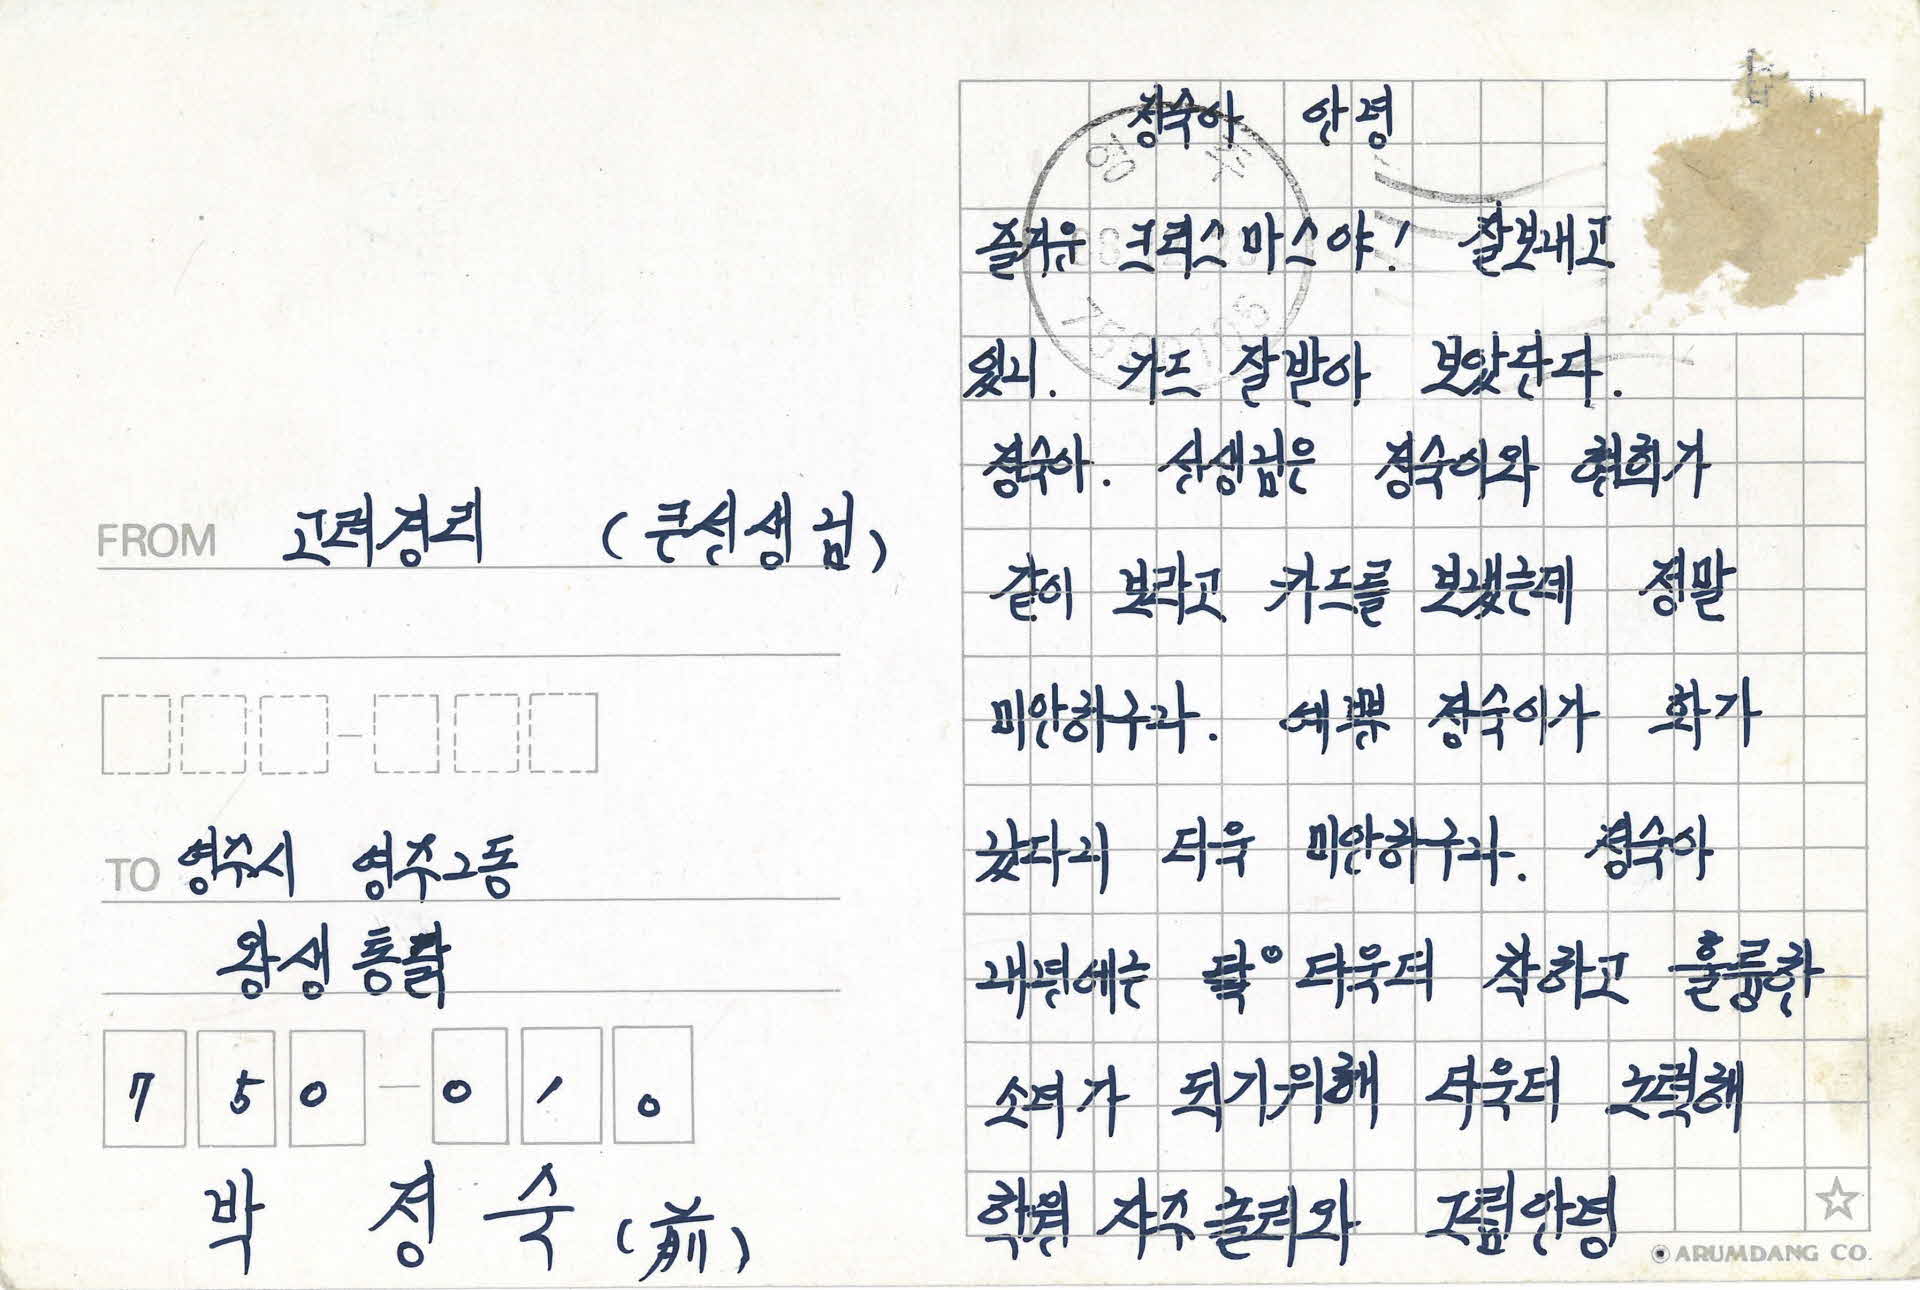 FROM 고려경리 (큰선생님)
TO 영주시 영주2동
왕생통닭
750-010
박 정 숙 (前)
정숙아 안녕
영 주
즐거운 크리스마스야! 잘보내고
있니. 카드 잘받아 보았단다.
정숙아. 선생님은 정숙이와 현희가
같이 보라고 카드를 보냈는데 정말
미안하구나. 예쁜 정숙이가 화가
났다니 더욱 미안하구나. 정숙아
내년에는 더욱더 착하고 훌륭한
소녀가 되기위해 더욱더 노력해
학원 자주 놀러와 그럼안녕
ARUMDANG CO.